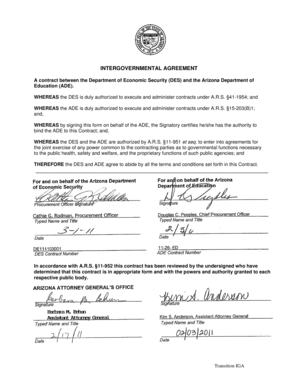 INTERGOVERNMENTAL AGREEMENT
A contract between the Department of Economic Security (DES) and the Arizona Department of
Education (ADE).
WHEREAS the DES is duly authorized to execute and administer contracts under A.R.S. §41-1954; and
WHEREAS the ADE is duly authorized to execute and administer contracts under A.R.S. §15-203(B)1;
and,
WHEREAS by signing this form on behalf of the ADE, the Signatory certifies he/she has the authority to
bind the ADE to this Contract; and.
WHEREAS the DES and the ADE are authorized by A.R.S. §11-951 et seq. to enter into agreements for
the joint exercise of any power common to the contracting parties as to governmental functions necessary
to the public health, safety and welfare, and the proprietary functions of such public agencies; and
THEREFORE the DES and ADE agree to abide by all the terms and conditions set forth in this Contract.
For and on behalf of the Arizona Department
of Economic Security
For and on behalf of the Arizona
Department of Education
Procurement Officer Signature
Signature
Cathie G. Rodman, Procurement Officer
Douglas C. Peeples, Chief Procurement Officer
Typed Name and Title
Typed Name and Title
3-1-11
Date
Date
DE111103001
11-26- ED
DES Contract Number
ADE Contract Number
In accordance with A.R.S. §11-952 this contract has been reviewed by the undersigned who have
determined that this contract is in appropriate form and with the powers and authority granted to each
respective public body.
ARIZONA ATTORNEY GENERAL'S OFFICE
Kim S. Anderson
Signature
Signature
Assistant Attorney General
Kim S. Anderson, Assistant Attorney General
Typed Name and Title
Typed Name and Title
2/17/11
02/03/2011
Date
Date
Transition IGA